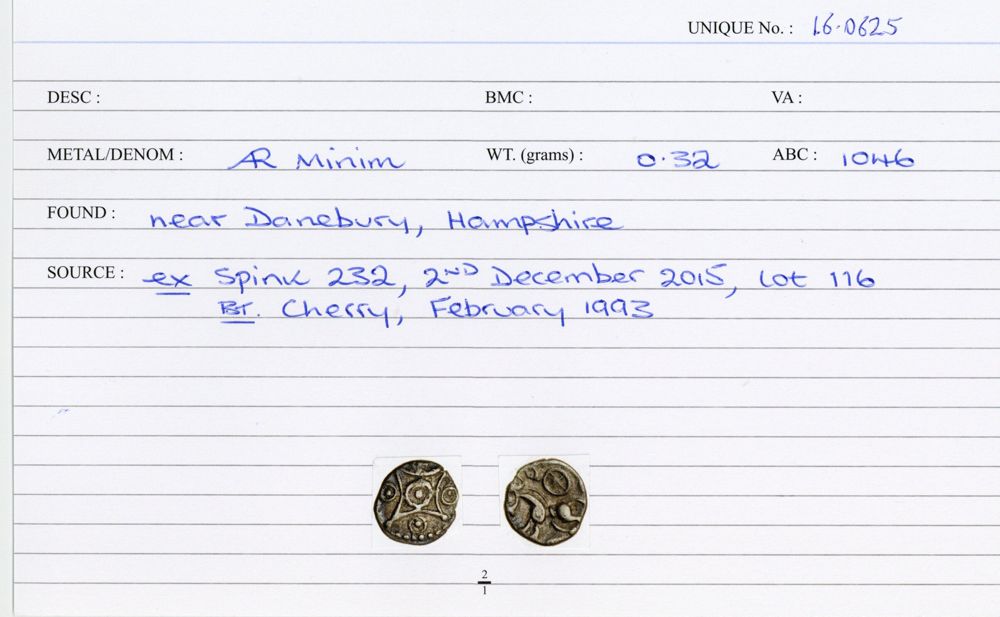 UNIQUE No. : 16.0625
DESC : BMC : VA :
METAL/DENOM : AR Minim WT. (grams) : 0.32 ABC : 1046
FOUND : near Danebury, Hampshire
SOURCE : ex Spink 232, 2ND December 2015, Lot 116
BT. Cherry, February 1993
2
1